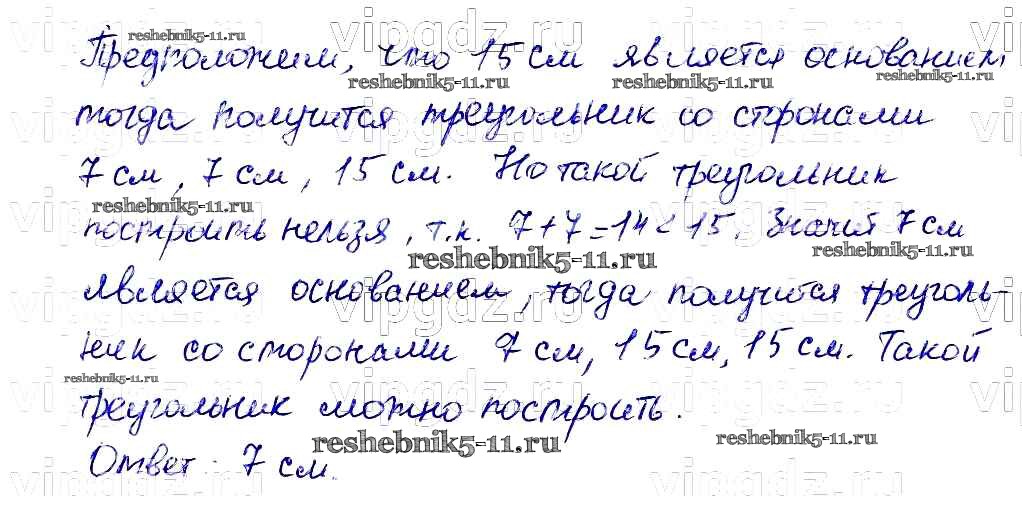 Предположим, что 15 см является основанием,
тогда получится треугольник со сторонами
7 см, 7 см, 15 см. Но такой треугольник
построить нельзя, т.к. 7+7=14<15. Значит 7 см
является основанием, тогда получится треуголь-
ник со сторонами 7 см, 15 см, 15 см. Такой
треугольник можно построить.
Ответ: 7 см.
reshebnik5-11.ru
reshebnik5-11.ru
reshebnik5-11.ru
reshebnik5-11.ru
reshebnik5-11.ru
reshebnik5-11.ru
reshebnik5-11.ru
reshebnik5-11.ru
reshebnik5-11.ru
reshebnik5-11.ru
vipgdz.ru